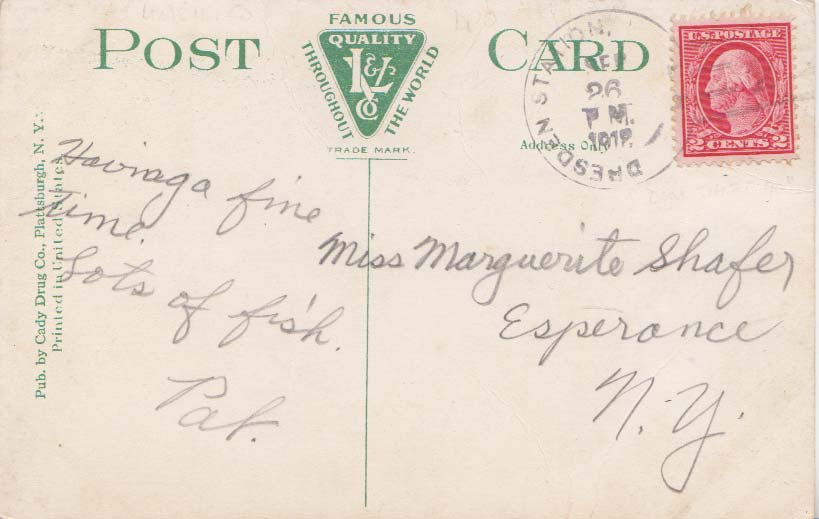 POST CARD
FAMOUS
QUALITY
THROUGHOUT THE WORLD
K&L
Co
TRADE MARK.
Address Only
DRESDEN STATION,
SEP
26
P M.
U.S. POSTAGE
2 CENTS 2
Pub. by Cady Drug Co., Plattsburgh, N. Y.
Printed in United States
Having a fine
time.
Lots of fish.
Pat.
Miss Marguerite Shafer
Esperance
N. Y.